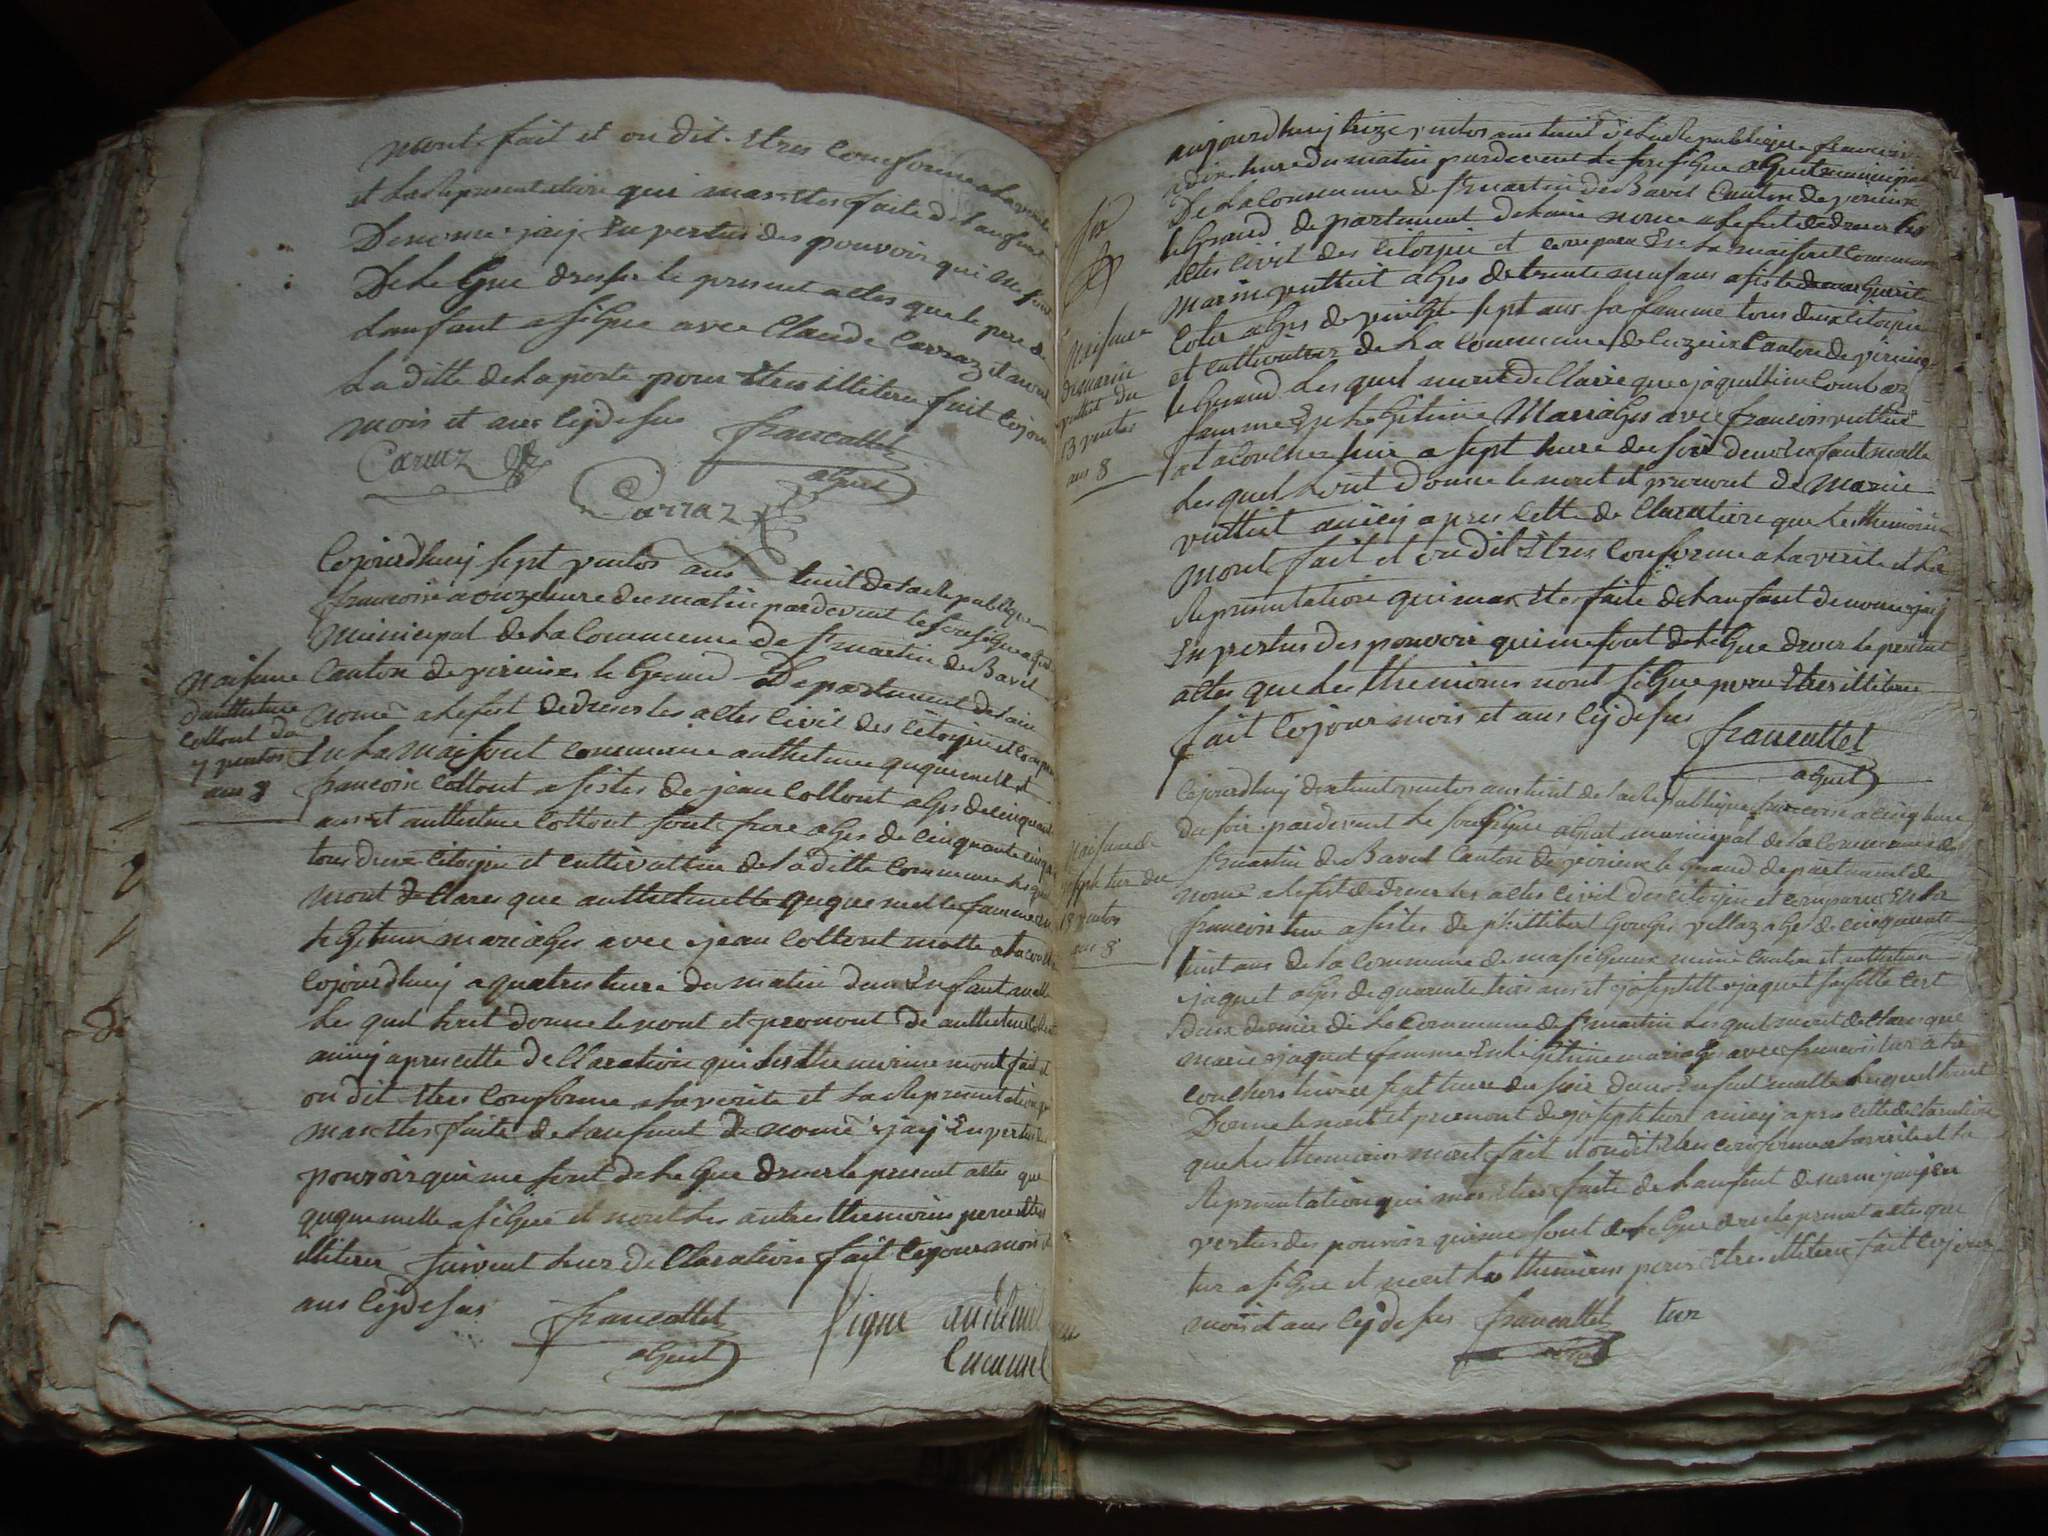 mont fait et on dit Etres conforme a la verite
et la Representation qui mas Ettes faite de lanfant
Denome jaij En vertus des pouvoir qui me sont
De le Gue dresser le present actes que le pere de
Lanfant a siGne avec Claude Carraz et avont
La ditte de La porte pour Etres illitere fait le jour
mois et ans cij desus
Carraz
francattet
aGent
Carraz
Cejourdhuij sept ventos ans huit de la Republique
francoise a onze heure du matin pardevent le sousiGne aGent
municipal de La Commune de St martin de Bavel
Canton de virieux le Grand Departement de Lain
nomé a lefet de dreser les actes civil des citoyin et compari
En La maisont commune anthelme guguemelle et
francoise Cottont asistes de jean Cottont aGes de cinquante
ans et anthelme Cottont sont frere aGes de cinquante cinq
tous deux citoyin et cultivatteur de La ditte commune les quel
mont declares que anthelmette guguemelle famme en
le Gitime mariaGes avec jean Cottont matte at acouche
cejourdhuij a quatres heure du matin dun Enfant malle
Les quel hont donne le nont et prenont de anthelme Cottont
ainsij apres cette de Claration qui les themoins mont fait et
on dit Etres Conforme a La verite et La Representation qui
mas Ettes faite de Lanfant De nomé jaij En vertus des
pouvoir qui me sont de le Gue dreser le present actes que
guguemelle a siGné et nont Les autres themoins pour Etres
illiteres suivent leur de Claration fait le jour mois et
ans cij desus
francattet
aGent
Signe
naisance
danthelme
Cottont du
7 ventos
ans 8
aujourdhuij treize ventos ans huit de La Republique francoise
a dix heure du matin pardevent Le sousiGne aGent municipal
De La Commune de St martin de Bavel Canton de virieux
le Grand departement de Lain nomé a lefet de dreser les
actes civil des citoyin et compari En La maisont commune
Marin vuttiet aGes de trente neuf ans asistes de marGueritte
aGes de vinGt sept ans sa famme tous deux citoyin
et cultivatteur de La Commune de luzeix Canton de virieux
le Grand Les quel mont de Claire que jaquelline Combaz
famme En le Gitime MarriaGes avec francois vuttiet
at acouches hier a sept heure du soir dun Enfant malle
Les quel hont Donne le nont et prenont de Marin
vuttiet ainsij apres cette de Claration que les themoins
mont fait et on dit Etres Conforme a La verite et La
Representation qui mas Ettes faite de Lanfant denome jaij
En vertus des pouvoir qui me sont de le Gue dreser le present
actes que Les themoins nont siGne pour Etres illitere
fait le jour mois et ans cij desus
francattet
aGent
naisance
de marin
vuttiet du
13 ventos
ans 8
Cejourdhuij dix huit ventos ans huit de La Republique francoise a cinq heure
du soir pardevent Le sousiGne aGent municipal de La Commune de
St martin de Bavel Canton de virieux le Grand departement de
nomé a lefet de dreser les actes civil des citoyin et compari En La
francois tur asistes de phillibert GouGes vellaz aGes de cinquante
huit ans de La commune de masiGneux meme Canton et anthelme
jaquet aGes de quarente trois ans et josephtte jaquet sa fille cest
deux dernier de La Commune de St martin Les quel mont declares que
marie jaquet famme En le Gitime mariaGes avec francois tur at a
couches hier a sept heure du soir dun Enfant malle Lequel hont
Donne le nont et prenont de joseph tur ainsij apres cette declaration
que Les themoins mont fait et on dit Etres conforme a La verite et La
Representation qui mas Ettes faite de Lanfent de nome jaij En
vertus des pouvoir qui me sont de le Gue dreser le present actes que
tur a siGne et nont Les themoins pour Etres illitere fait le jour
mois et ans cij desus francattet tur
aGent
naisance de
joseph tur du
18 ventos
ans 8